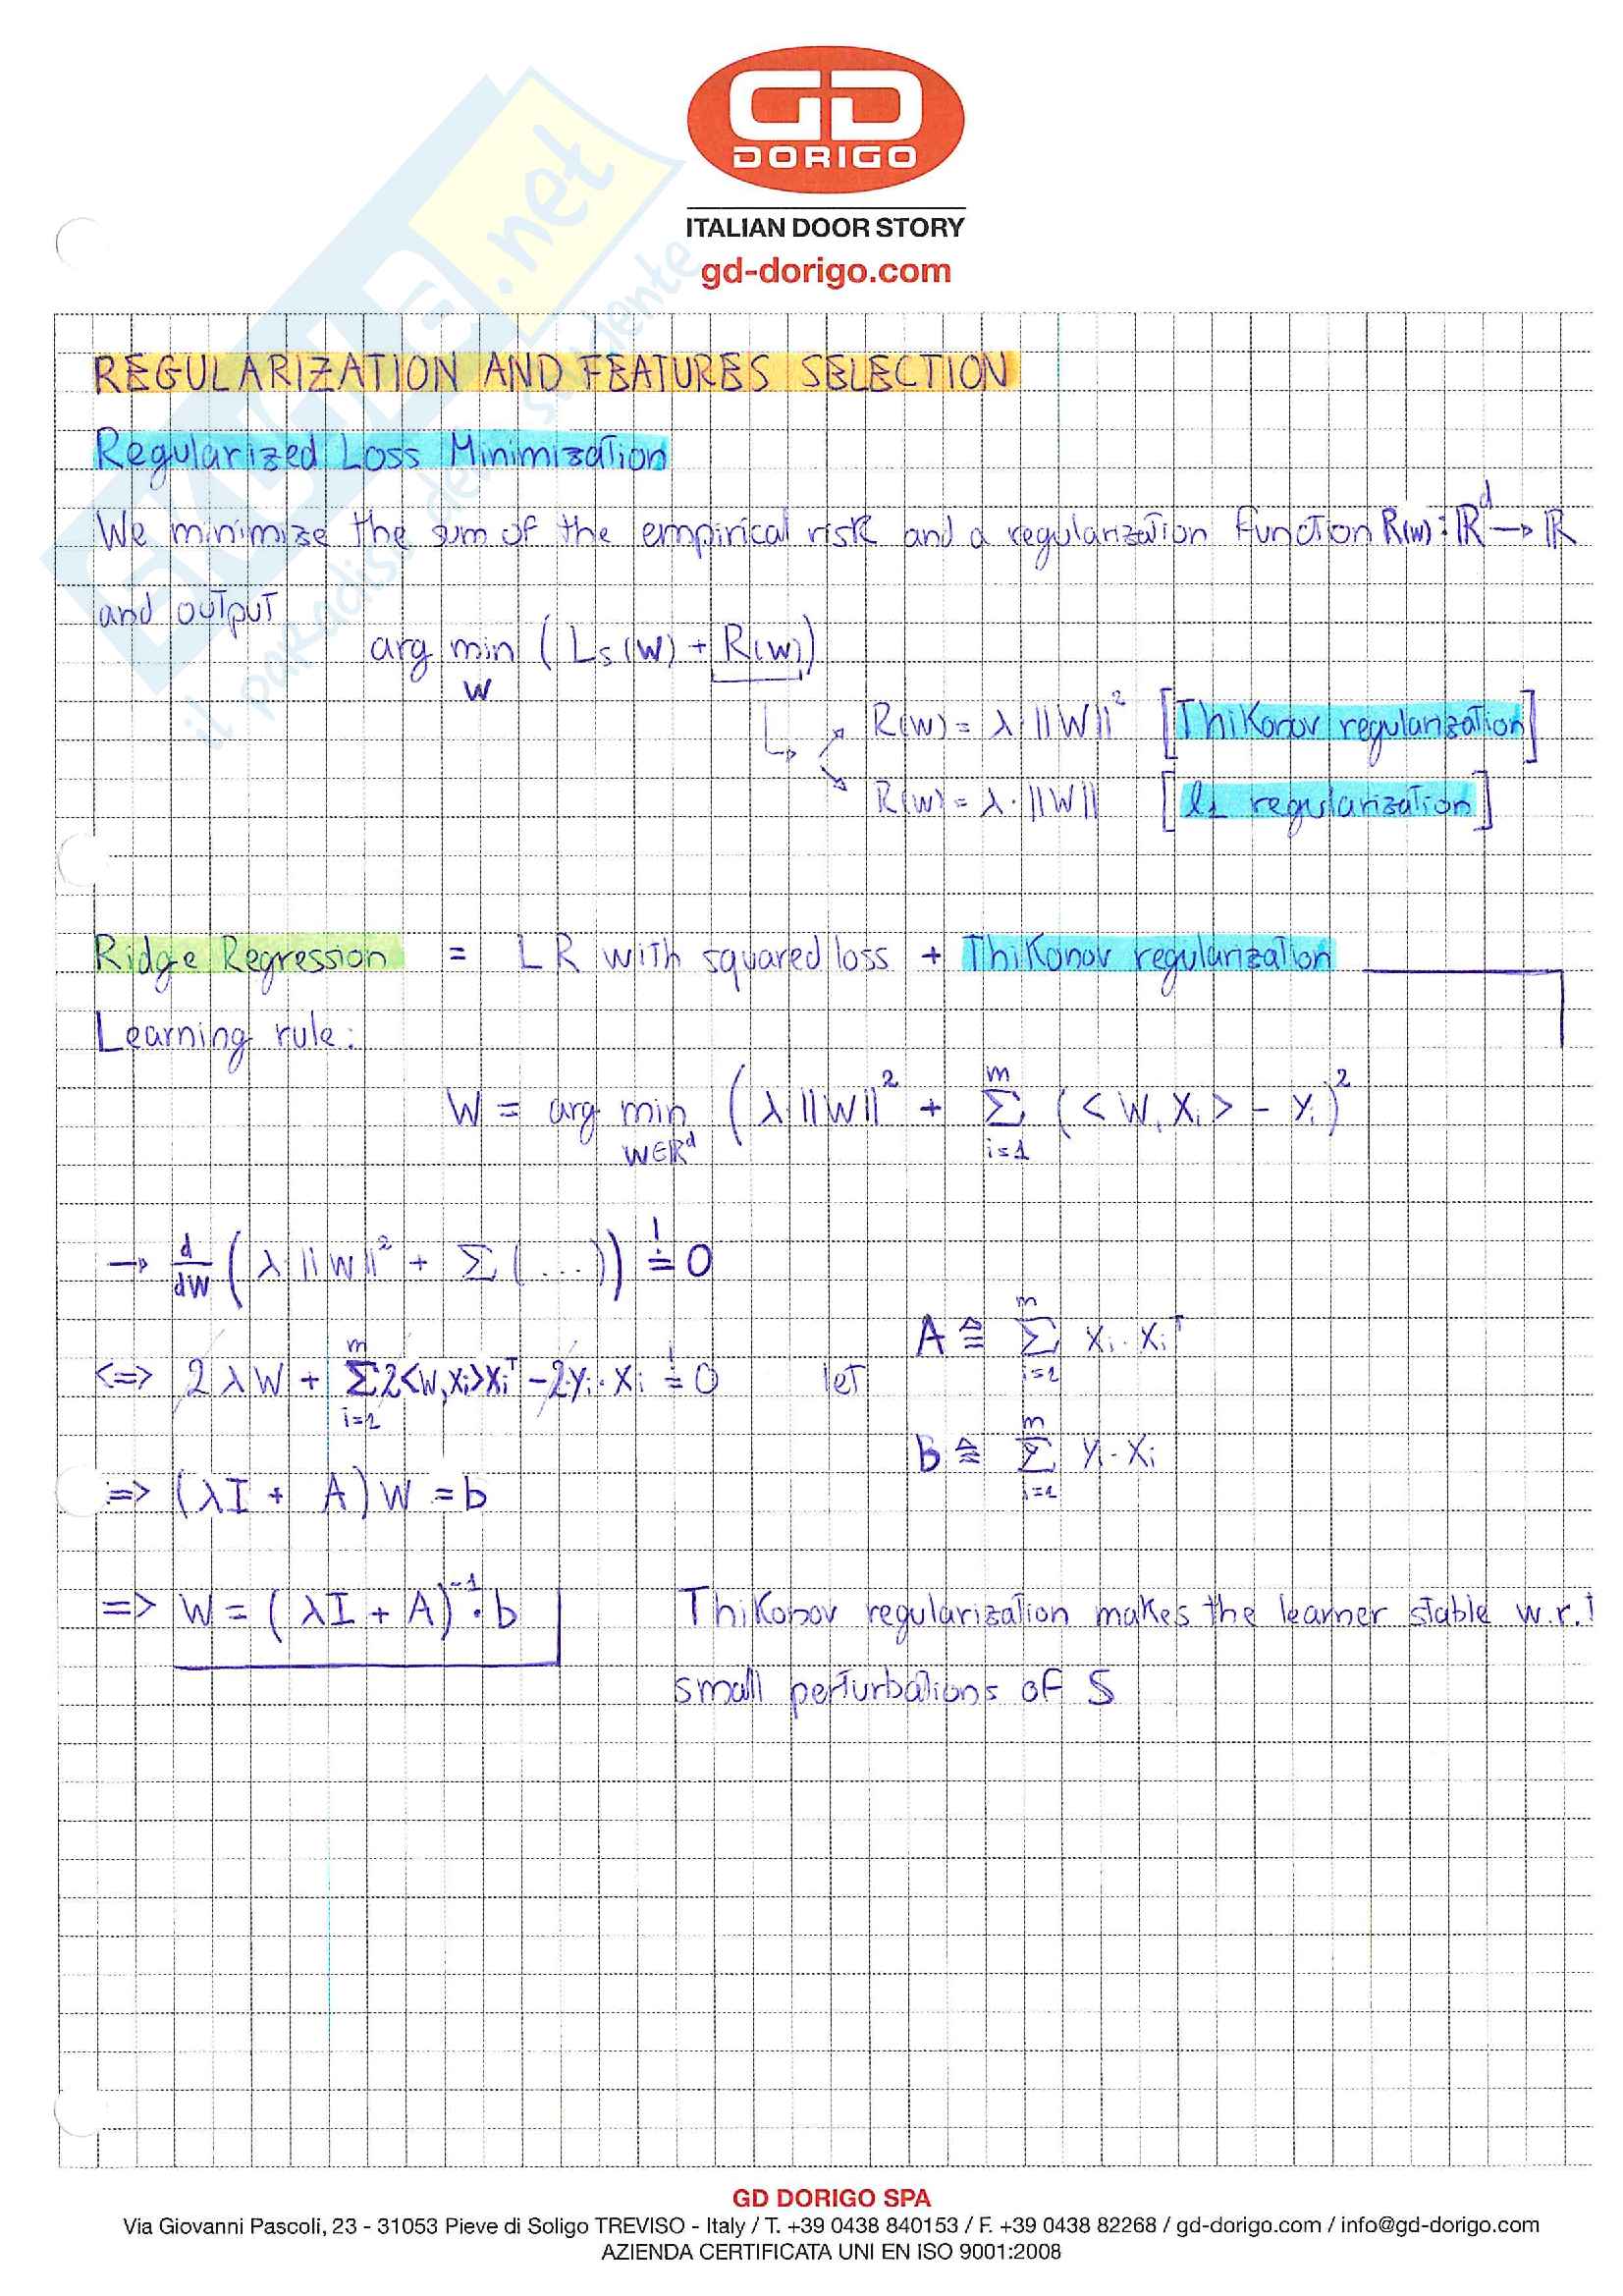 GD
DORIGO
ITALIAN DOOR STORY
gd-dorigo.com
SKUOLA.net
il paradiso dello studente
REGULARIZATION AND FEATURES SELECTION
Regularized Loss Minimization
We minimize the sum of the empirical risk and a regularization function R(w): ℝ^d → ℝ
and output
arg min_w (L_S(w) + R(w))
↳ R(w) = λ·||w||² [Thikonov regularization]
R(w) = λ·||w|| [ℓ1 regularization]
Ridge Regression = LR with squared loss + Thikonov regularization
Learning rule:
w = arg min_{w∈ℝ^d} (λ||w||² + Σ_{i=1}^m (<w, x_i> - y_i)²
→ d/dw (λ||w||² + Σ(...)) != 0
<=> 2λw + Σ_{i=1}^m 2<w,x_i>x_i^T - 2y_i·x_i != 0 let A ≙ Σ_{i=1}^m x_i·x_i^T
b ≙ Σ_{i=1}^m y_i·x_i
=> (λI + A)w = b
=> w = (λI + A)^-1·b Thikonov regularization makes the learner stable w.r.t
small perturbations of S
GD DORIGO SPA
Via Giovanni Pascoli, 23 - 31053 Pieve di Soligo TREVISO - Italy / T. +39 0438 840153 / F. +39 0438 82268 / gd-dorigo.com / info@gd-dorigo.com
AZIENDA CERTIFICATA UNI EN ISO 9001:2008